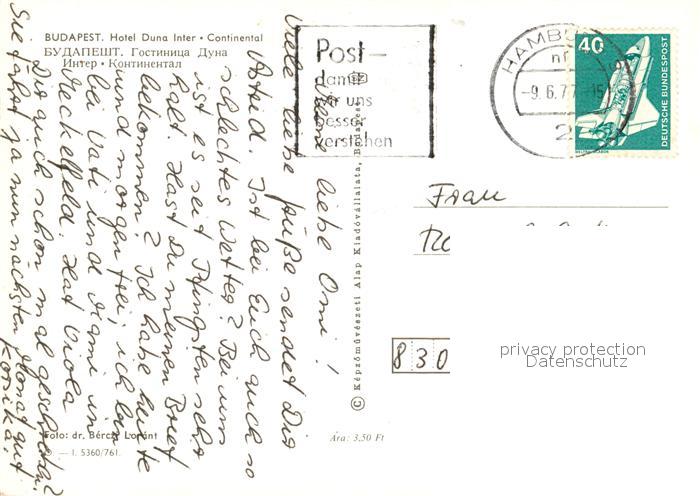 BUDAPEST. Hotel Duna Inter • Continental
БУДАПЕШТ. Гостиница Дуна
Интер • Континентал
Meine liebe Omi!
Viele liebe Grüße sendet Dir
Astrid. Ist bei Euch auch so
schlechtes Wetter? Bei uns
ist es seit Pfingsten sehr
kalt. Hast Du meinen Brief
bekommen? Ich habe heute
und morgen frei, ich bin
bei Vati und Mami in
Meckelfeld. Hat Viola
Dir auch schon mal geschrieben?
Sie fährt ja nun nächsten Monat auf
Korsika!
Foto: dr. Bérczi Loránt
— I. 5360/761.
Ára: 3,50 Ft
© Képzőművészeti Alap Kiadóvállalata, Budapest
Post—
damit
wir uns
besser
verstehen
HAMBU
-9.6.77-15
2
40
DEUTSCHE BUNDESPOST
WELTRAUMLABOR
Frau
830
privacy protection
Datenschutz